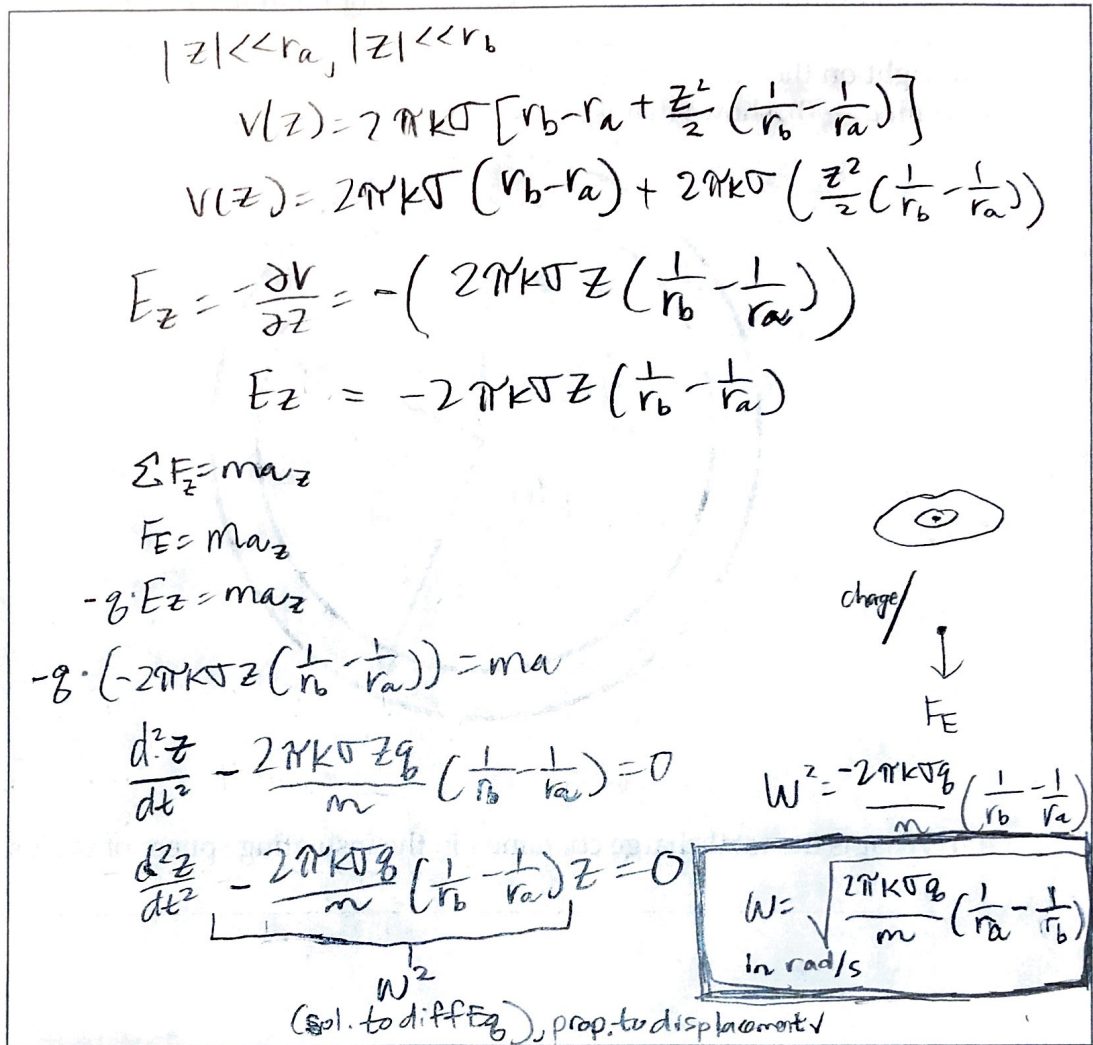 |z|<<ra, |z|<<rb
V(z)=2πkσ[rb-ra+z²/2(1/rb-1/ra)]
V(z)=2πkσ(rb-ra)+2πkσ(z²/2(1/rb-1/ra))
Ez=-∂V/∂z=-(2πkσz(1/rb-1/ra))
Ez = -2πkσz(1/rb-1/ra)
ΣFz=maz
FE=maz
-q·Ez=maz
-q·(-2πkσz(1/rb-1/ra))=ma
d²z/dt² - 2πkσzq/m (1/rb-1/ra)=0
d²z/dt² - 2πkσq/m (1/rb-1/ra)z=0
w²
(sol. to diffEq), prop. to displacement✓
charge
FE
W²=-2πkσq/m (1/rb-1/ra)
W=√(2πkσq/m (1/ra-1/rb))
in rad/s